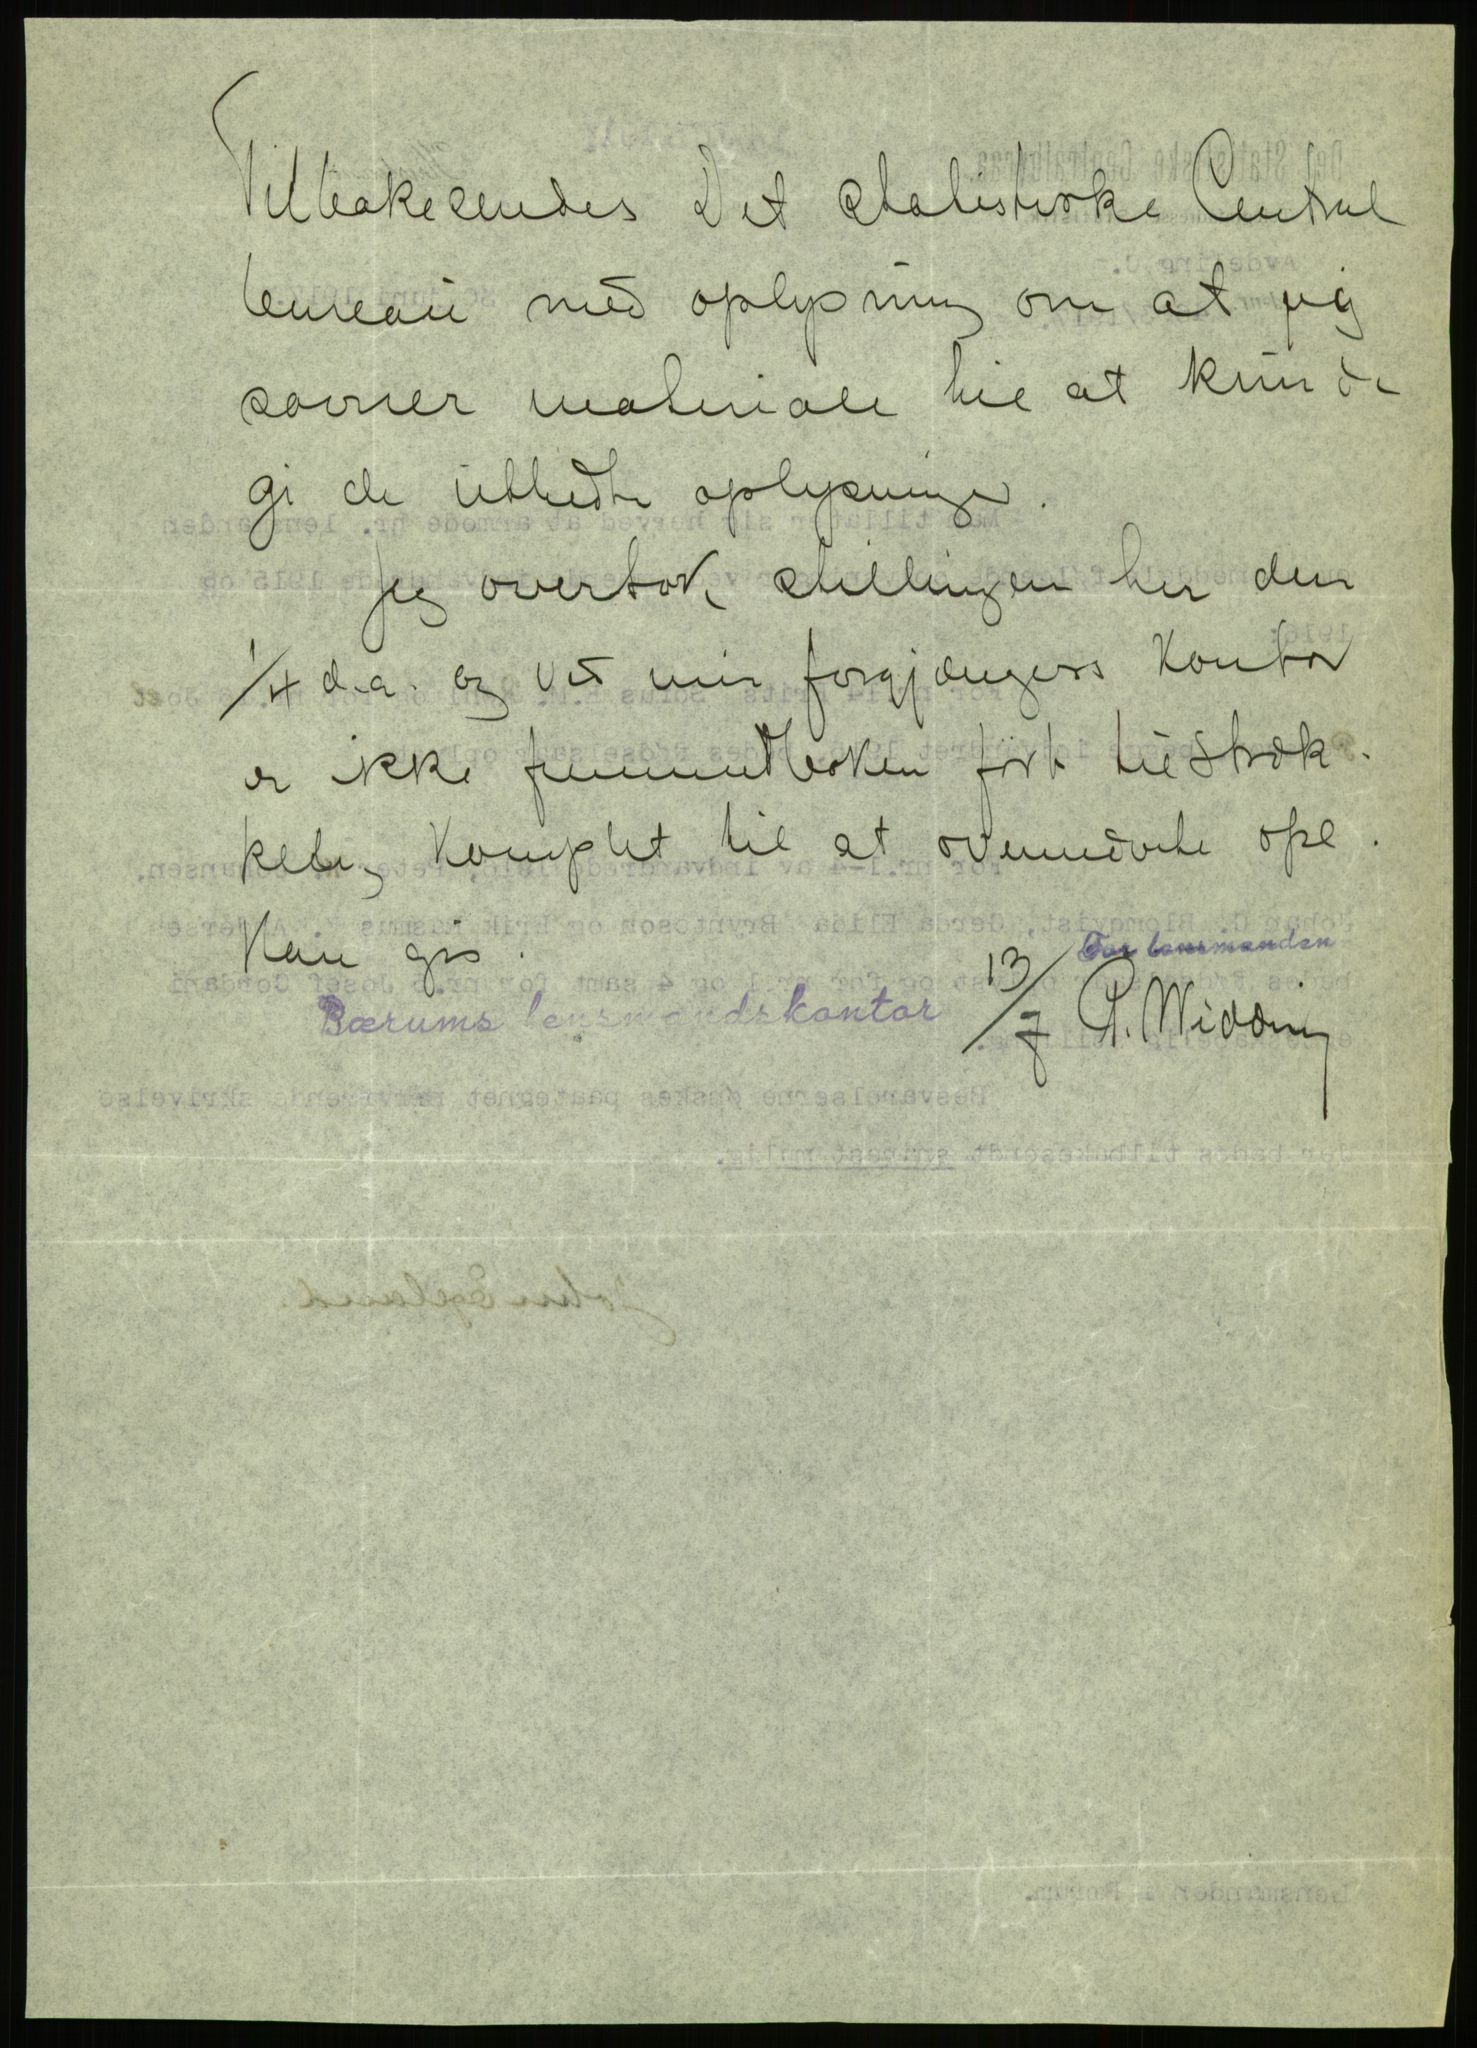 Tilbakesendes Det statistiske Central
bureau med oplysning om at jeg
savner materiale til at kunde
gi de utbedte oplysninger.
Jeg overtok stillingen her den
1/4 d.a. og ved min forgjængers kontor
er ikke fremmedboken ført tilstræk-
kelig komplet til at ovennævnte opl.
kan gis.
For lensmanden
Bærums lensmandskontor 13/7 P. Widding